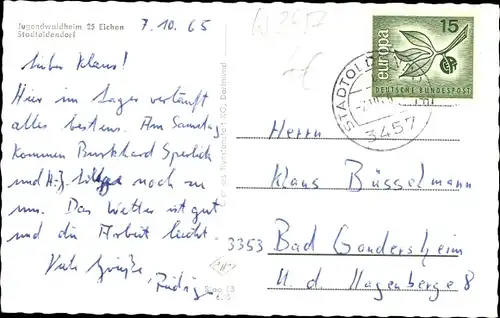 Jugendwaldheim 25 Eichen
Stadtoldendorf
7. 10. 65
Lieber Klaus!
Hier im Lager verläuft
alles bestens. Am Samstag
kommen Burkhard
und H.-J. noch zu
uns. Das Wetter ist gut
und die Arbeit leicht.
Viele Grüße, Rüdiger
europa
15
DEUTSCHE BUNDESPOST
STADTOLD
3457
Herrn
Klaus Büsselmann
3353 Bad Gandersheim
A. d. Hagenberge 8